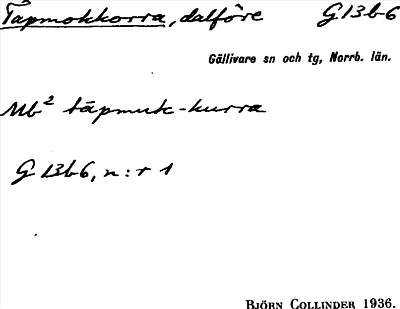 Tāpmokkorra, dalföre G 13 b 6
Gällivare sn och tg, Norrb. län.
Mb² tāpmuk-kurra
G 13 b 6, n:r 1
BJÖRN COLLINDER 1936.